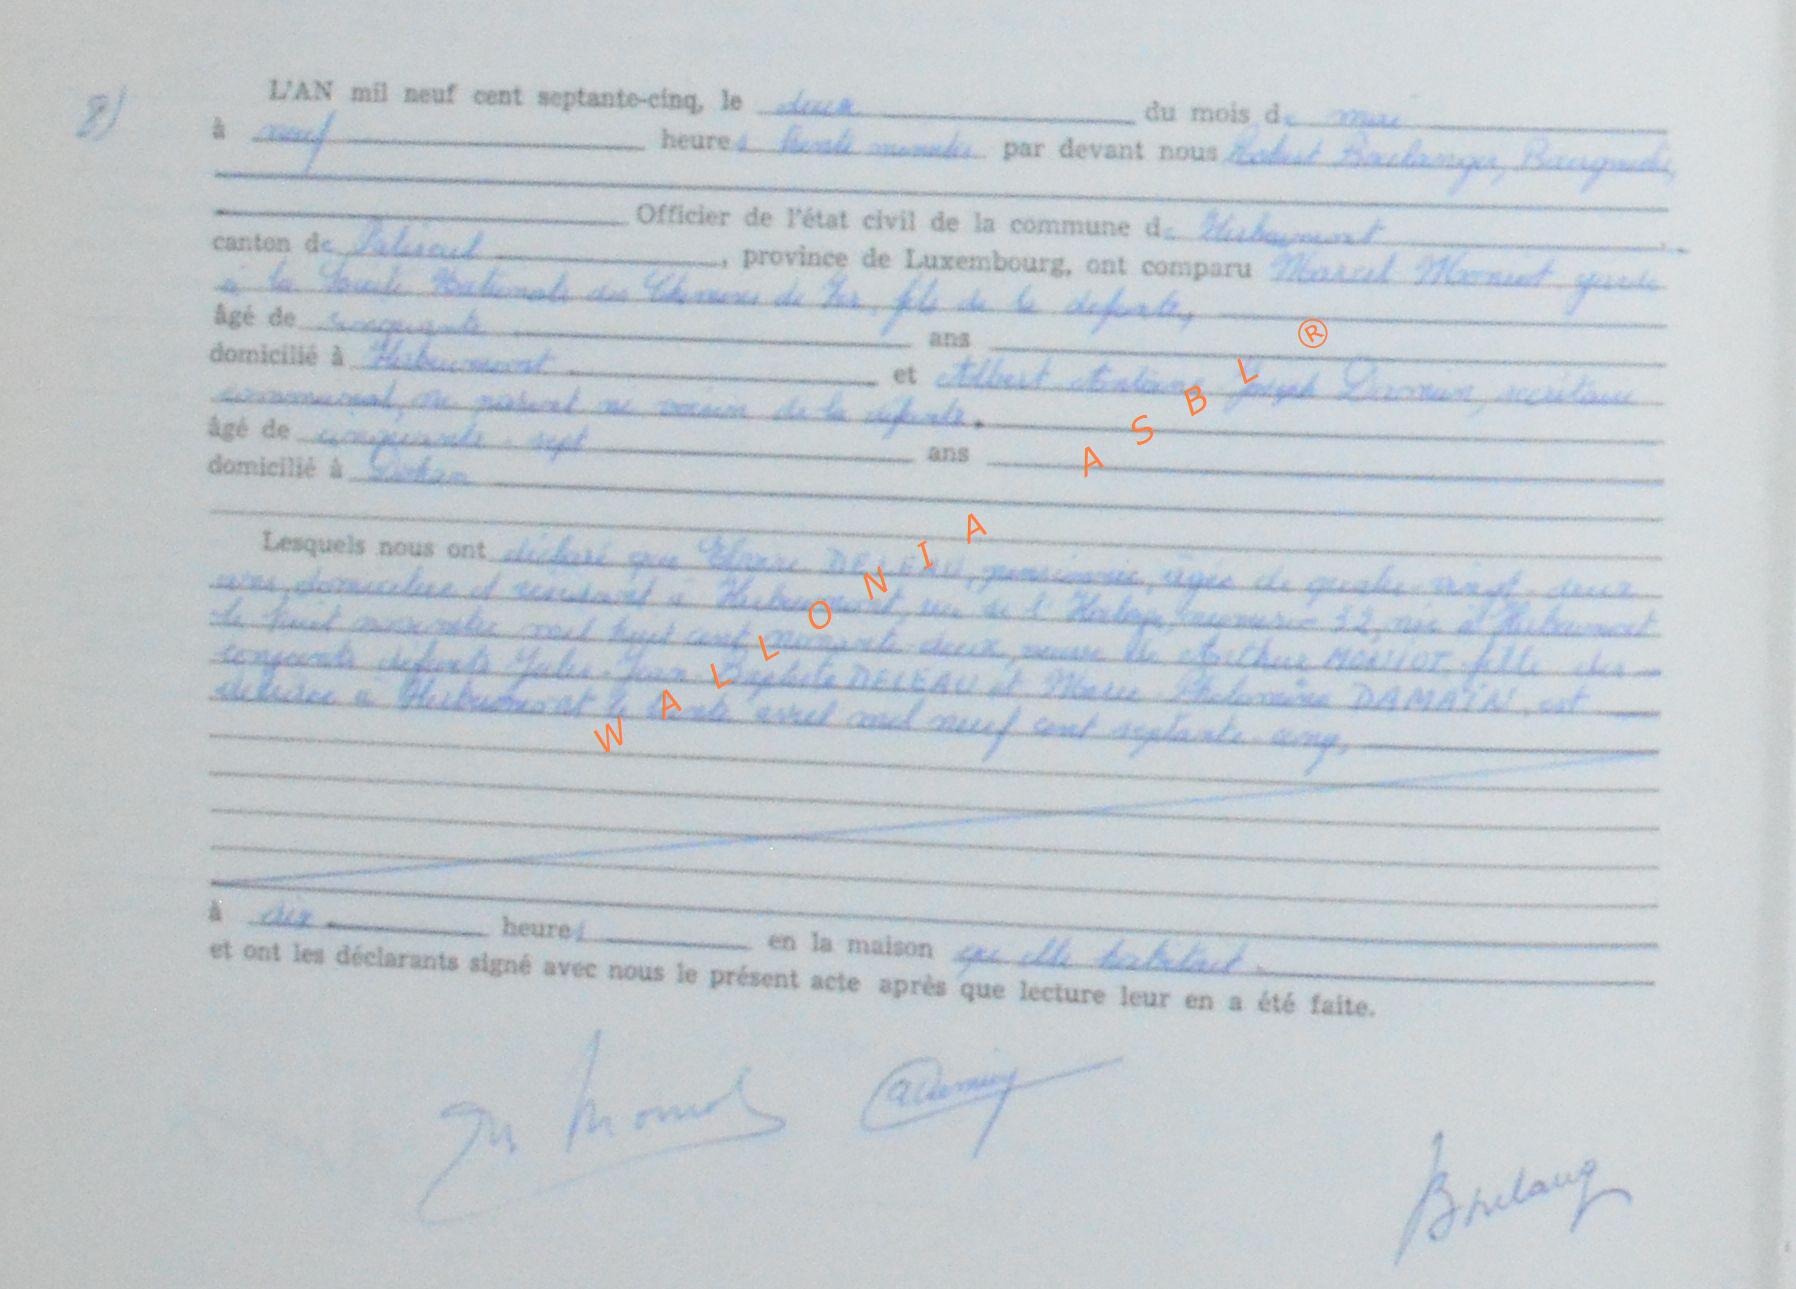 8)
L'AN mil neuf cent septante-cinq, le deux du mois de mai
à neuf heures trente minutes par devant nous Robert Boulanger, Bourgmestre,
Officier de l'état civil de la commune de Herbeumont
canton de Paliseul, province de Luxembourg, ont comparu Marcel Moniot garde
à la Société Nationale des Chemins de Fer, fils de la défunte,
âgé de cinquante ans
domicilié à Herbeumont et Albert Antoine Joseph secrétaire
communal, ni parent ni voisin de la défunte.
âgé de cinquante-sept ans
domicilié à Dohan
Lesquels nous ont déclaré que DELEAU, pensionnée, âgée de quatre-vingt-deux
ans, domiciliée et résidant à Herbeumont, rue de l' numéro 32, née à Herbeumont
le huit novembre mil huit cent nonante-deux, veuve de Arthur MONIOT, fille des
conjoints défunts Jules Jean-Baptiste DELEAU et Marie Philomène DAMAIN, est
décédée à Herbeumont le trente avril mil neuf cent septante-cinq,
à dix heures en la maison qu'elle habitait.
et ont les déclarants signé avec nous le présent acte après que lecture leur en a été faite.
WALLONIA ASBL ®